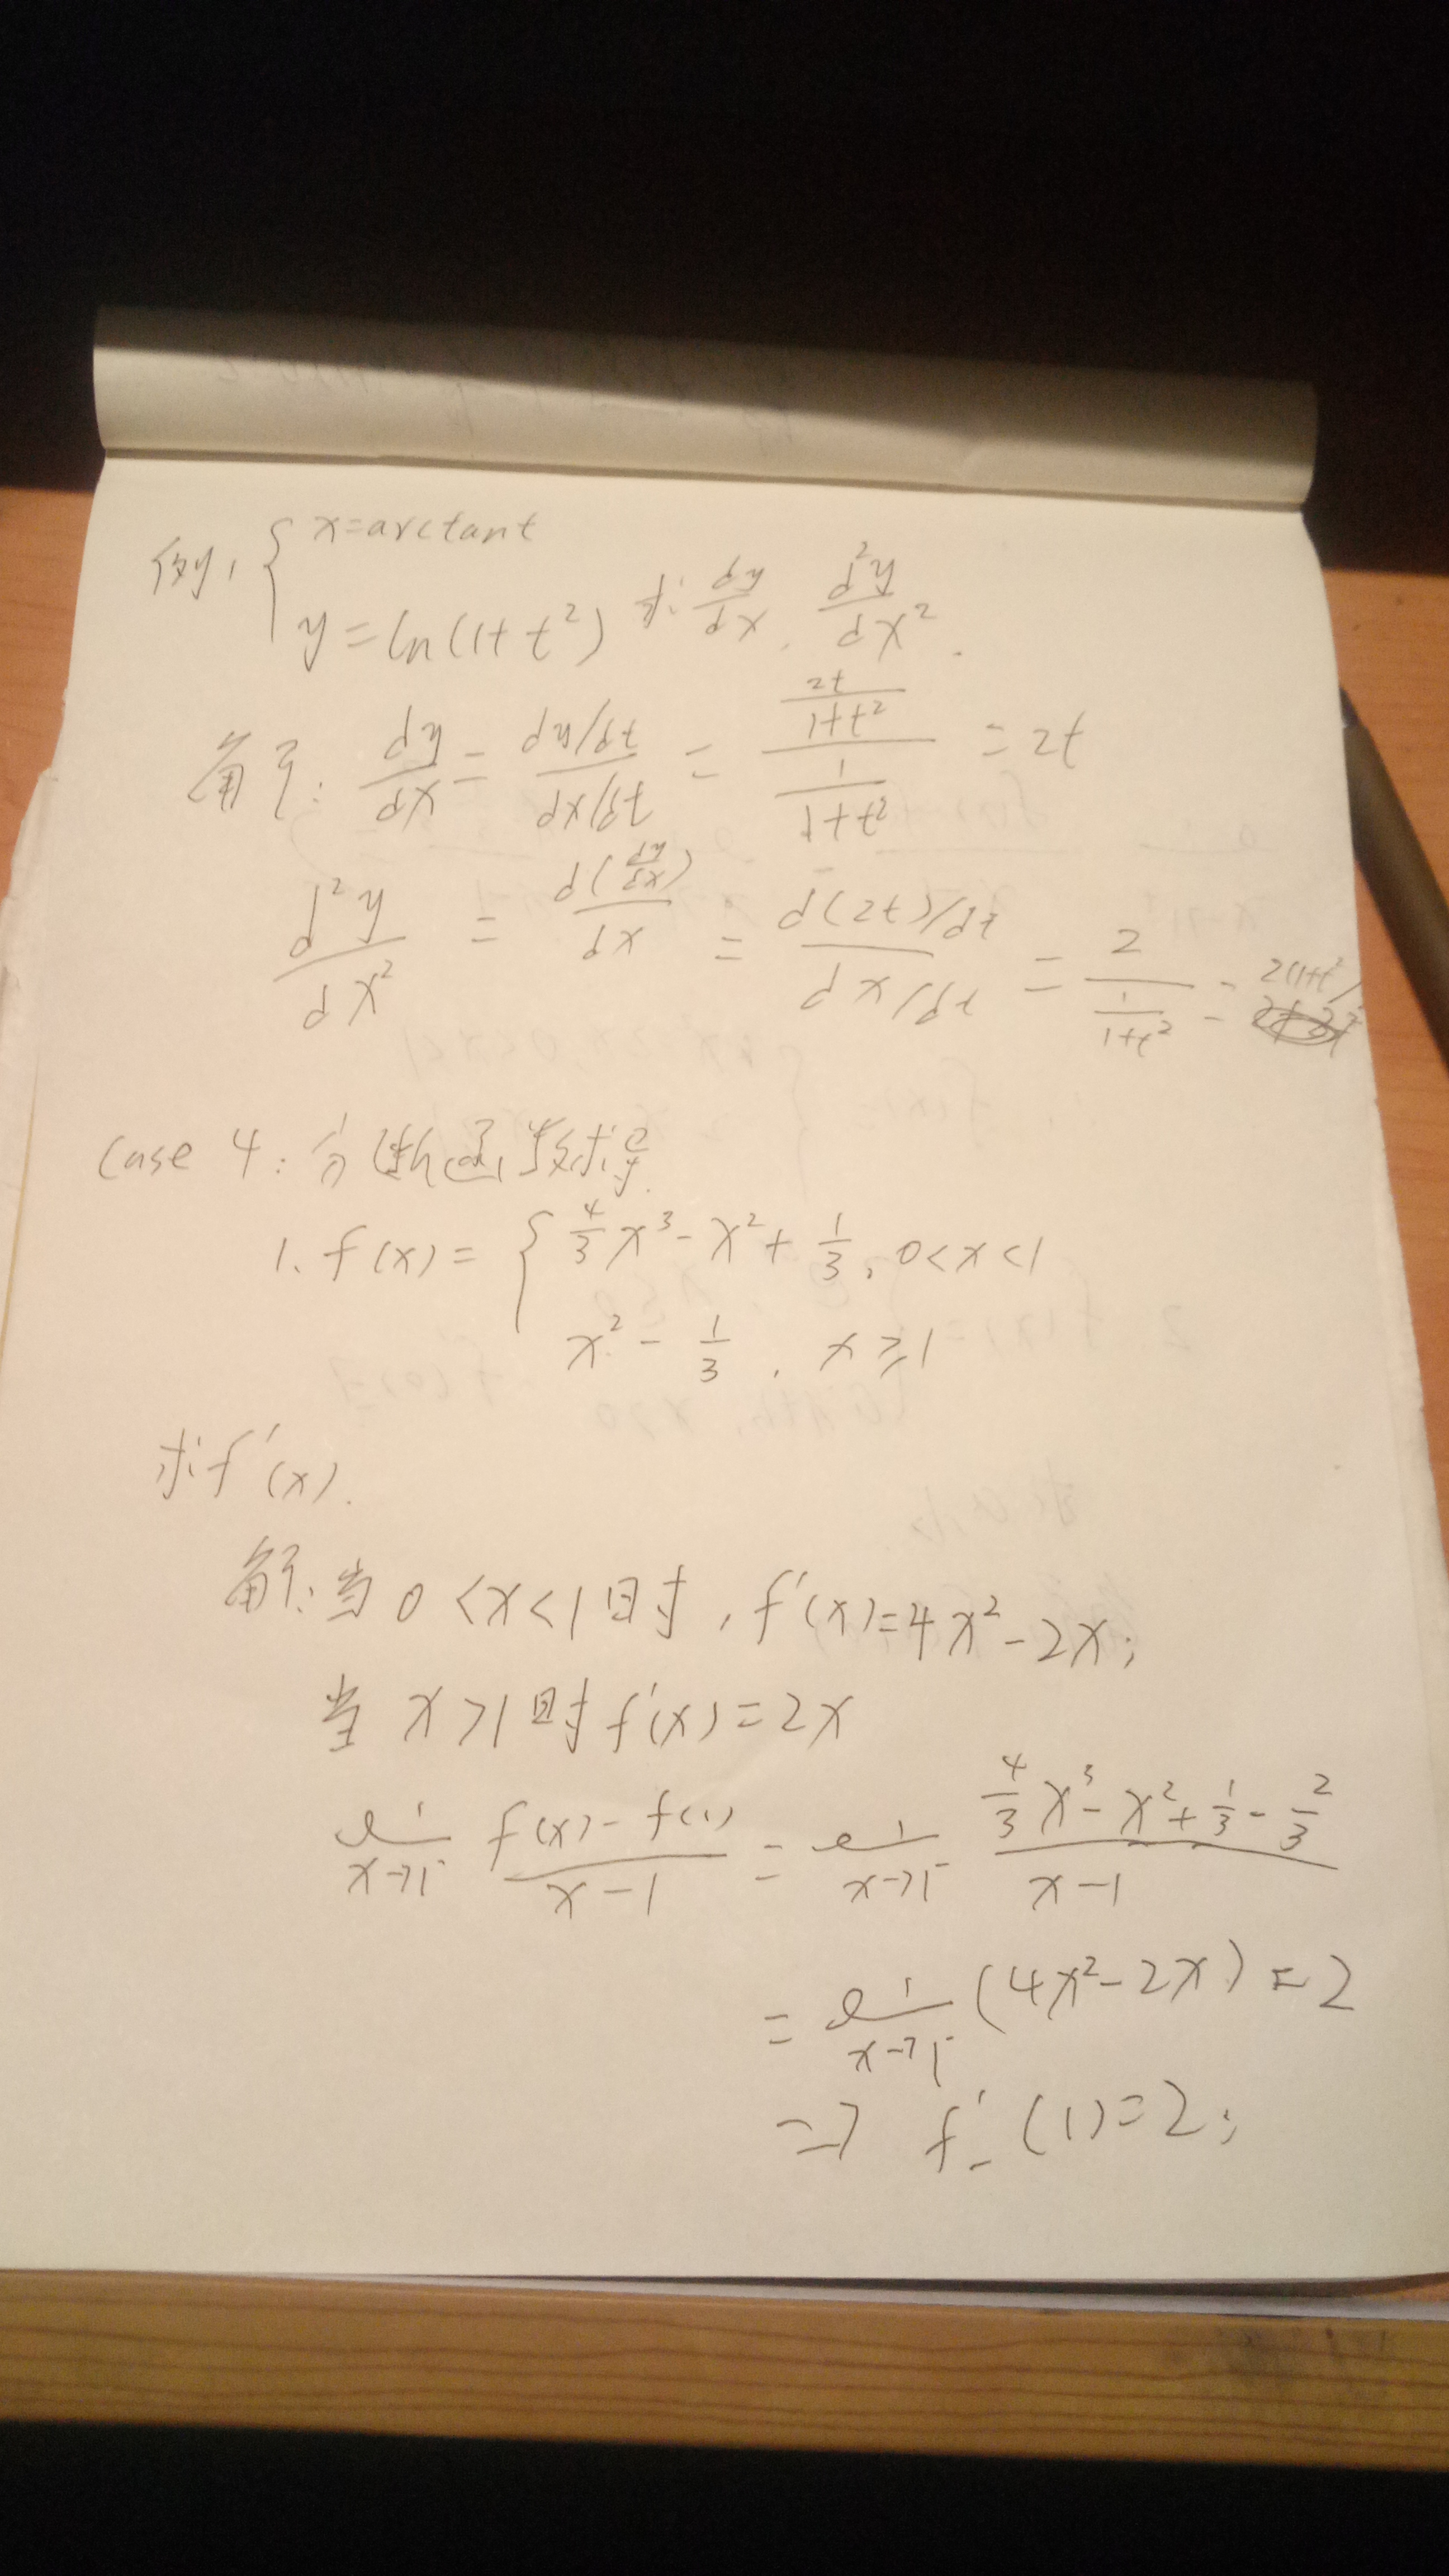 例1 { x=arctant
y=ln(1+t²) 求 dy/dx . d²y/dx² .
解: dy/dx = (dy/dt)/(dx/dt) = (2t/(1+t²))/(1/(1+t²)) = 2t
d²y/dx² = d(dy/dx)/dx = (d(2t)/dt)/(dx/dt) = 2/(1/(1+t²)) = 2(1+t²)
Case 4: 分段函数求导.
1. f(x) = { 4/3 x³ - x² + 1/3 , 0<x<1
x² - 1/3 , x≥1
求f'(x).
解: 当 0<x<1时, f'(x)=4x²-2x;
当 x>1时 f'(x)=2x
lim x→1⁻ (f(x)-f(1))/(x-1) = lim x→1⁻ (4/3 x³ - x² + 1/3 - 2/3)/(x-1)
= lim x→1⁻ (4x²-2x) = 2
⇒ f'₋(1)=2;